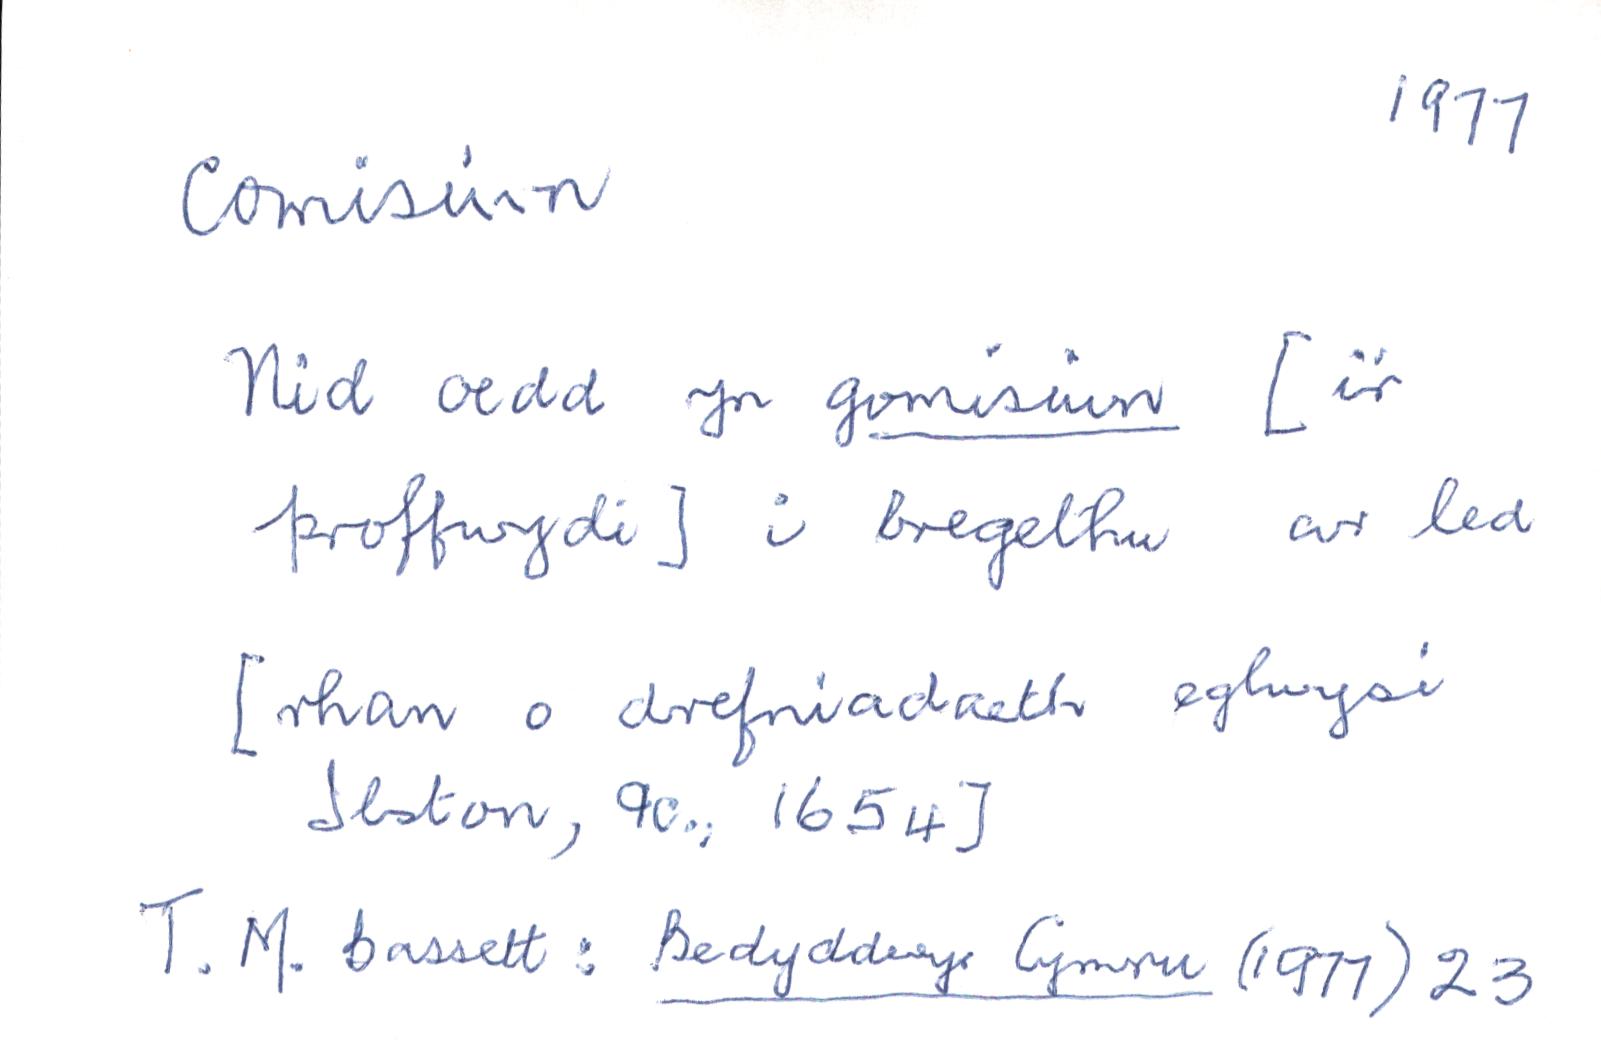 1977
Comisiwn
Nid oedd yn gomisiwn [i'r
proffwydi] i bregethu ar led
[rhan o drefniadaeth eglwysi
Ilston, &c., 1654]
T. M. Bassett : Bedyddwyr Cymru (1977) 23